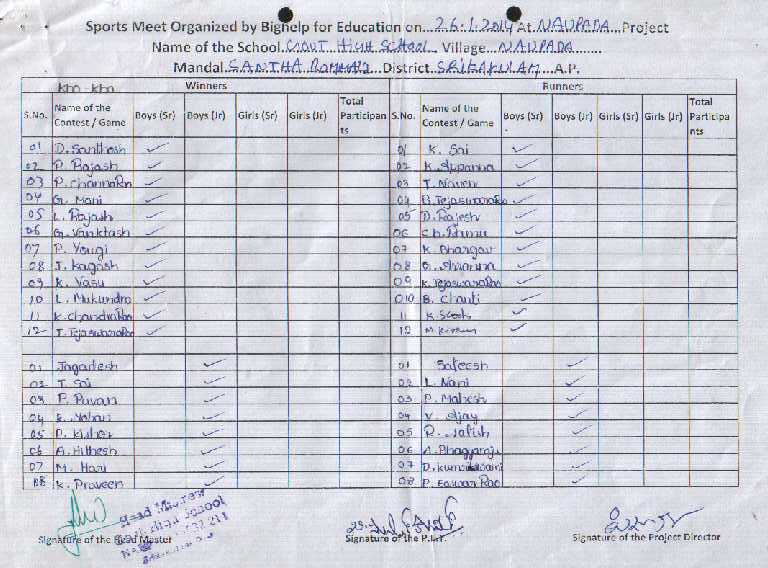 Sports Meet Organized by Bighelp for Education on...26.1.2014 At. NAUPADA...Project
Name of the School. Govt High School Village. NAUPADA.......
Mandal. SANTHA Bommali...District. SRIKAKULAM...A.P.
kho - kho Winners Runners
S.No. Name of the Contest / Game Boys (Sr) Boys (Jr) Girls (Sr) Girls (Jr) Total Participants S.No. Name of the Contest / Game Boys (Sr) Boys (Jr) Girls (Sr) Girls (Jr) Total Participants
01 D. Santhosh ✓ 01 K. Sai ✓
02 P. Rajash ✓ 02 K. Appanna ✓
03 P. channaRao ✓ 03 T. Naveen ✓
04 G. Mani ✓ 04 B. TejaswaraRao ✓
05 L. Rajash ✓ 05 D. Rajesh ✓
06 G. Vanktash ✓ 06 Ch. ✓
07 P. Yougi ✓ 07 K Bhargav ✓
08 J. kagash ✓ 08 G. ✓
09 K. Vasu ✓ 09 K. TejaswaraRao ✓
10 L. Mukundra ✓ 010 B. Chanti ✓
11 K. chandraRao ✓ 11 K. ✓
12 T. TejaswaraRao ✓ 12 M. ✓
01 Jagadesh ✓ 01 Sateesh ✓
02 T. Sai ✓ 02 L. Nani ✓
03 P. Pavan ✓ 03 P. Mahesh ✓
04 Mohan ✓ 04 V. Ajay ✓
05 P. kishor ✓ 05 R. Satish ✓
06 A. Hithesh ✓ 06 A. Bhagyaraju ✓
07 M. Hari ✓ 07 D. ✓
08 K. Praveen ✓ 08 P. Eswar Rao ✓
Head Mistress
High School
532 211
Signature of the Head Master Signature of the P.E.T. Signature of the Project Director